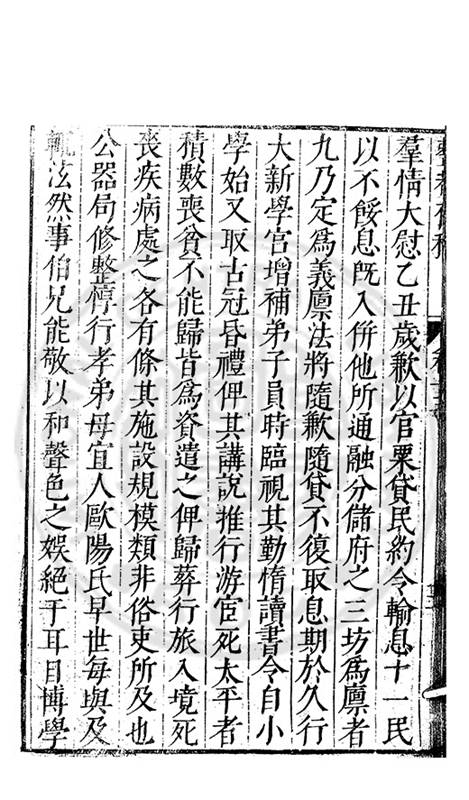 羣情大慰乙丑歲歉以官粟貸民約令輸息十一民
以不餒息旣入倂他所通融分儲府之三坊爲廪者
九乃定爲義廪法將隨歉隨貸不復取息期於久行
大新學官增補弟子員時臨視其勤惰讀書令自小
學始又取古冠昏禮俾其講說推行游宦死太平者
積數喪貧不能歸皆爲資遣之俾歸葬行旅入境死
喪疾病處之各有條其施設規模類非俗吏所及也
公器局修整惇行孝弟母宜人歐陽氏早世每與及
輒泫然事伯兄能敬以和聲色之娛絕于耳目博學